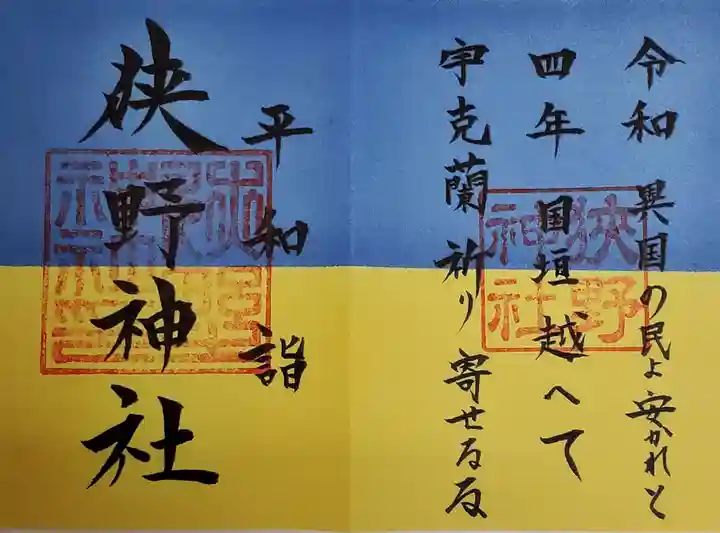 令和 異国の民よ安かれと
四年 国垣越へて
宇克蘭祈り寄せるる
狭野
神社
平和詣
狭野神社